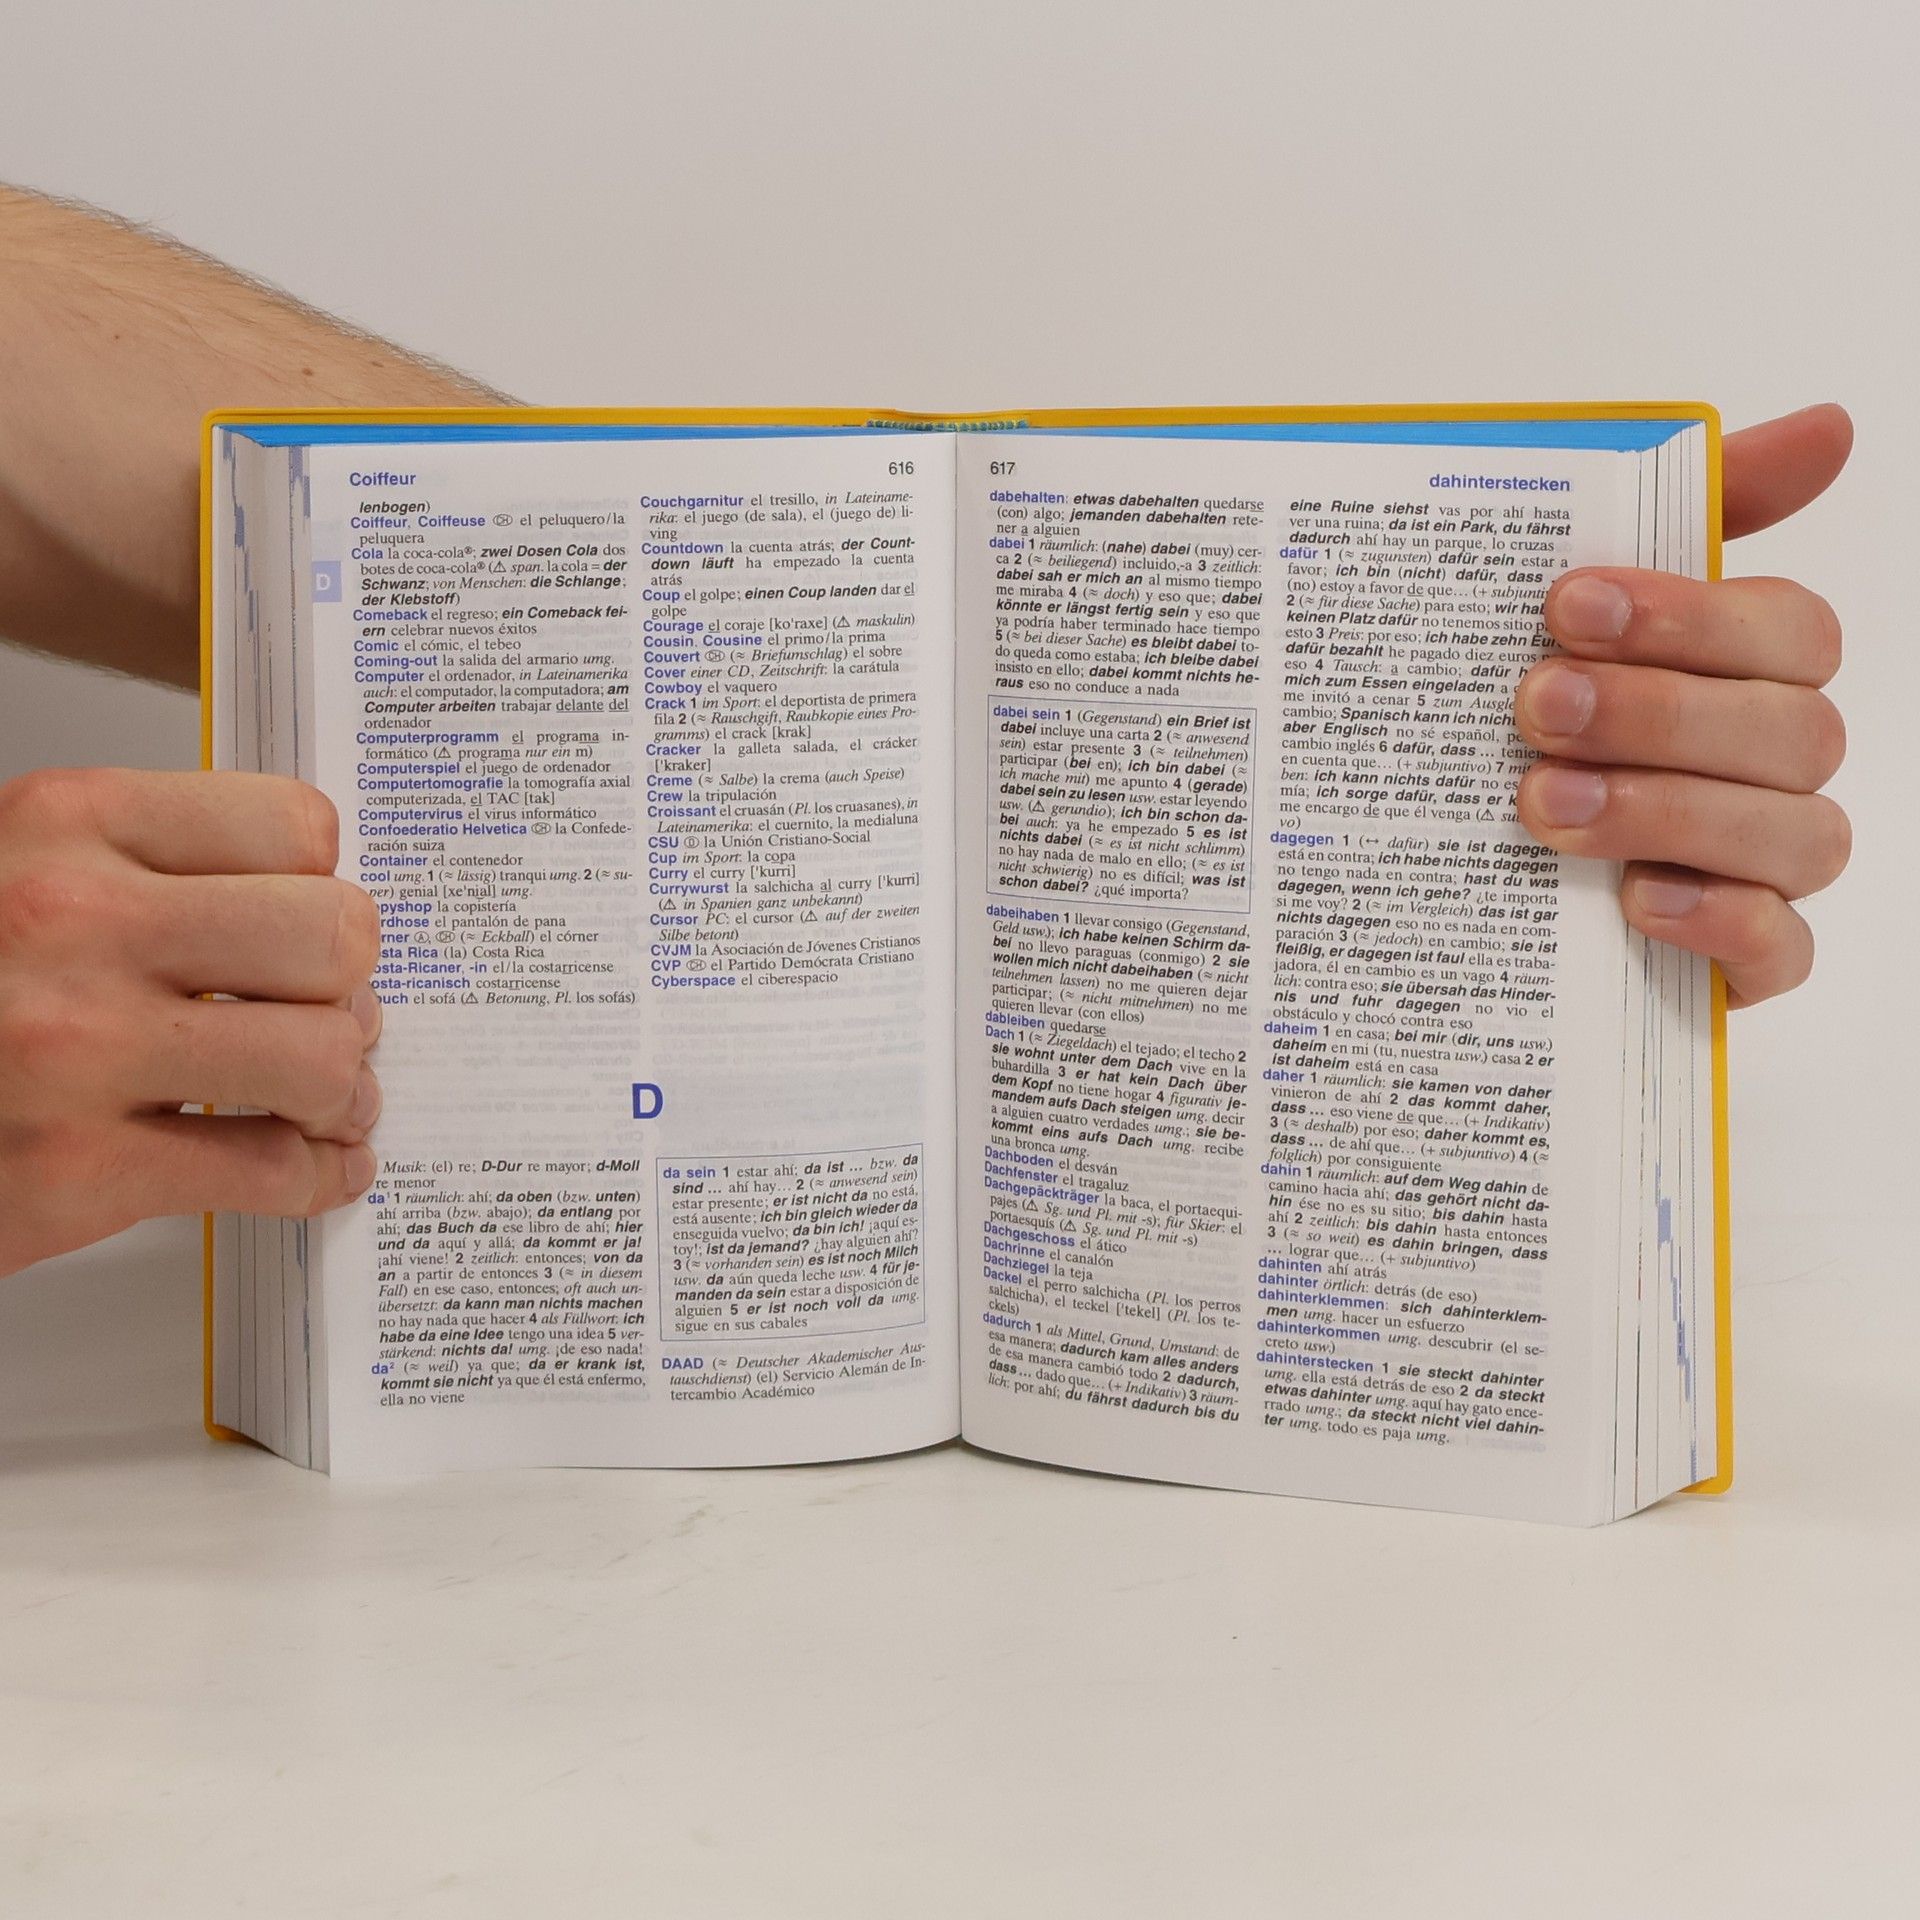 Coiffeur
616
lenbogen)
Coiffeur, Coiffeuse CH el peluquero/la
peluquera
Cola la coca-cola®; zwei Dosen Cola dos
botes de coca-cola® (⚠ span. la cola = der
Schwanz; von Menschen: die Schlange;
der Klebstoff)
Comeback el regreso; ein Comeback fei-
ern celebrar nuevos éxitos
Comic el cómic, el tebeo
Coming-out la salida del armario umg.
Computer el ordenador, in Lateinamerika
auch: el computador, la computadora; am
Computer arbeiten trabajar delante del
ordenador
Computerprogramm el programa in-
formático (⚠ programa nur ein m)
Computerspiel el juego de ordenador
Computertomografie la tomografía axial
computerizada, el TAC [tak]
Computervirus el virus informático
Confoederatio Helvetica CH la Confede-
ración suiza
Container el contenedor
cool umg. 1 (≈ lässig) tranqui umg. 2 (≈ su-
per) genial [xe'nial] umg.
pyshop la copistería
rdhose el pantalón de pana
rner A, CH (≈ Eckball) el córner
sta Rica (la) Costa Rica
osta-Ricaner, -in el/la costarricense
osta-ricanisch costarricense
ouch el sofá (⚠ Betonung, Pl. los sofás)
D
Couchgarnitur el tresillo, in Lateiname-
rika: el juego (de sala), el (juego de) li-
ving
Countdown la cuenta atrás; der Count-
down läuft ha empezado la cuenta
atrás
Coup el golpe; einen Coup landen dar el
golpe
Courage el coraje [ko'raxe] (⚠ maskulin)
Cousin, Cousine el primo/la prima
Couvert CH (≈ Briefumschlag) el sobre
Cover einer CD, Zeitschrift: la carátula
Cowboy el vaquero
Crack 1 im Sport: el deportista de primera
fila 2 (≈ Rauschgift, Raubkopie eines Pro-
gramms) el crack [krak]
Cracker la galleta salada, el crácker
['kraker]
Creme (≈ Salbe) la crema (auch Speise)
Crew la tripulación
Croissant el cruasán (Pl. los cruasanes), in
Lateinamerika: el cuernito, la medialuna
CSU D la Unión Cristiano-Social
Cup im Sport: la copa
Curry el curry ['kurri]
Currywurst la salchicha al curry ['kurri]
(⚠ in Spanien ganz unbekannt)
Cursor PC: el cursor (⚠ auf der zweiten
Silbe betont)
CVJM la Asociación de Jóvenes Cristianos
CVP CH el Partido Demócrata Cristiano
Cyberspace el ciberespacio
D
Musik: (el) re; D-Dur re mayor; d-Moll
re menor
da¹ 1 räumlich: ahí; da oben (bzw. unten)
ahí arriba (bzw. abajo); da entlang por
ahí; das Buch da ese libro de ahí; hier
und da aquí y allá; da kommt er ja!
¡ahí viene! 2 zeitlich: entonces; von da
an a partir de entonces 3 (≈ in diesem
Fall) en ese caso, entonces; oft auch un-
übersetzt: da kann man nichts machen
no hay nada que hacer 4 als Füllwort: ich
habe da eine Idee tengo una idea 5 ver-
stärkend: nichts da! umg. ¡de eso nada!
da² (≈ weil) ya que; da er krank ist,
kommt sie nicht ya que él está enfermo,
ella no viene
da sein 1 estar ahí; da ist ... bzw. da
sind ... ahí hay... 2 (≈ anwesend sein)
estar presente; er ist nicht da no está,
está ausente; ich bin gleich wieder da
enseguida vuelvo; da bin ich! ¡aquí es-
toy!; ist da jemand? ¿hay alguien ahí?
3 (≈ vorhanden sein) es ist noch Milch
usw. da aún queda leche usw. 4 für je-
manden da sein estar a disposición de
alguien 5 er ist noch voll da umg.
sigue en sus cabales
DAAD (≈ Deutscher Akademischer Aus-
tauschdienst) (el) Servicio Alemán de In-
tercambio Académico
617
dahinterstecken
dabehalten: etwas dabehalten quedarse
(con) algo; jemanden dabehalten rete-
ner a alguien
dabei 1 räumlich: (nahe) dabei (muy) cer-
ca 2 (≈ beiliegend) incluido,-a 3 zeitlich:
dabei sah er mich an al mismo tiempo
me miraba 4 (≈ doch) y eso que; dabei
könnte er längst fertig sein y eso que
ya podría haber terminado hace tiempo
5 (≈ bei dieser Sache) es bleibt dabei to-
do queda como estaba; ich bleibe dabei
insisto en ello; dabei kommt nichts he-
raus eso no conduce a nada
dabei sein 1 (Gegenstand) ein Brief ist
dabei incluye una carta 2 (≈ anwesend
sein) estar presente 3 (≈ teilnehmen)
participar (bei en); ich bin dabei (≈
ich mache mit) me apunto 4 (gerade)
dabei sein zu lesen usw. estar leyendo
usw. (⚠ gerundio); ich bin schon da-
bei auch: ya he empezado 5 es ist
nichts dabei (≈ es ist nicht schlimm)
no hay nada de malo en ello; (≈ es ist
nicht schwierig) no es difícil; was ist
schon dabei? ¿qué importa?
dabeihaben 1 llevar consigo (Gegenstand,
Geld usw.); ich habe keinen Schirm da-
bei no llevo paraguas (conmigo) 2 sie
wollen mich nicht dabeihaben (≈ nicht
teilnehmen lassen) no me quieren dejar
participar; (≈ nicht mitnehmen) no me
quieren llevar (con ellos)
dableiben quedarse
Dach 1 (≈ Ziegeldach) el tejado; el techo 2
sie wohnt unter dem Dach vive en la
buhardilla 3 er hat kein Dach über
dem Kopf no tiene hogar 4 figurativ je-
mandem aufs Dach steigen umg. decir
a alguien cuatro verdades umg.; sie be-
kommt eins aufs Dach umg. recibe
una bronca umg.
Dachboden el desván
Dachfenster el tragaluz
Dachgepäckträger la baca, el portaequi-
pajes (⚠ Sg. und Pl. mit -s); für Skier: el
portaesquís (⚠ Sg. und Pl. mit -s)
Dachgeschoss el ático
Dachrinne el canalón
Dachziegel la teja
Dackel el perro salchicha (Pl. los perros
salchicha), el teckel ['tekel] (Pl. los te-
ckels)
dadurch 1 als Mittel, Grund, Umstand: de
esa manera; dadurch kam alles anders
de esa manera cambió todo 2 dadurch,
dass ... dado que... (+ Indikativ) 3 räum-
lich: por ahí; du fährst dadurch bis du
eine Ruine siehst vas por ahí hasta
ver una ruina; da ist ein Park, du fährst
dadurch ahí hay un parque, lo cruzas
dafür 1 (≈ zugunsten) dafür sein estar a
favor; ich bin (nicht) dafür, dass
(no) estoy a favor de que... (+ subjunti
2 (≈ für diese Sache) para esto; wir hab
keinen Platz dafür no tenemos sitio p
esto 3 Preis: por eso; ich habe zehn Eur
dafür bezahlt he pagado diez euros
eso 4 Tausch: a cambio; dafür h
mich zum Essen eingeladen a
me invitó a cenar 5 zum Ausgle
cambio; Spanisch kann ich nich
aber Englisch no sé español, pe
cambio inglés 6 dafür, dass ... tenien
en cuenta que... (+ subjuntivo) 7 mi
ben: ich kann nichts dafür no es
mía; ich sorge dafür, dass er k
me encargo de que él venga (⚠ su
vo)
dagegen 1 (↔ dafür) sie ist dagegen
está en contra; ich habe nichts dagegen
no tengo nada en contra; hast du was
dagegen, wenn ich gehe? ¿te importa
si me voy? 2 (≈ im Vergleich) das ist gar
nichts dagegen eso no es nada en com-
paración 3 (≈ jedoch) en cambio; sie ist
fleißig, er dagegen ist faul ella es traba-
jadora, él en cambio es un vago 4 räum-
lich: contra eso; sie übersah das Hinder-
nis und fuhr dagegen no vio el
obstáculo y chocó contra eso
daheim 1 en casa; bei mir (dir, uns usw.)
daheim en mi (tu, nuestra usw.) casa 2 er
ist daheim está en casa
daher 1 räumlich: sie kamen von daher
vinieron de ahí 2 das kommt daher,
dass ... eso viene de que... (+ Indikativ)
3 (≈ deshalb) por eso; daher kommt es,
dass ... de ahí que... (+ subjuntivo) 4 (≈
folglich) por consiguiente
dahin 1 räumlich: auf dem Weg dahin de
camino hacia ahí; das gehört nicht da-
hin ése no es su sitio; bis dahin hasta
ahí 2 zeitlich: bis dahin hasta entonces
3 (≈ so weit) es dahin bringen, dass
... lograr que... (+ subjuntivo)
dahinten ahí atrás
dahinter örtlich: detrás (de eso)
dahinterklemmen: sich dahinterklem-
men umg. hacer un esfuerzo
dahinterkommen umg. descubrir (el se-
creto usw.)
dahinterstecken 1 sie steckt dahinter
umg. ella está detrás de eso 2 da steckt
etwas dahinter umg. aquí hay gato ence-
rrado umg.; da steckt nicht viel dahin-
ter umg. todo es paja umg.